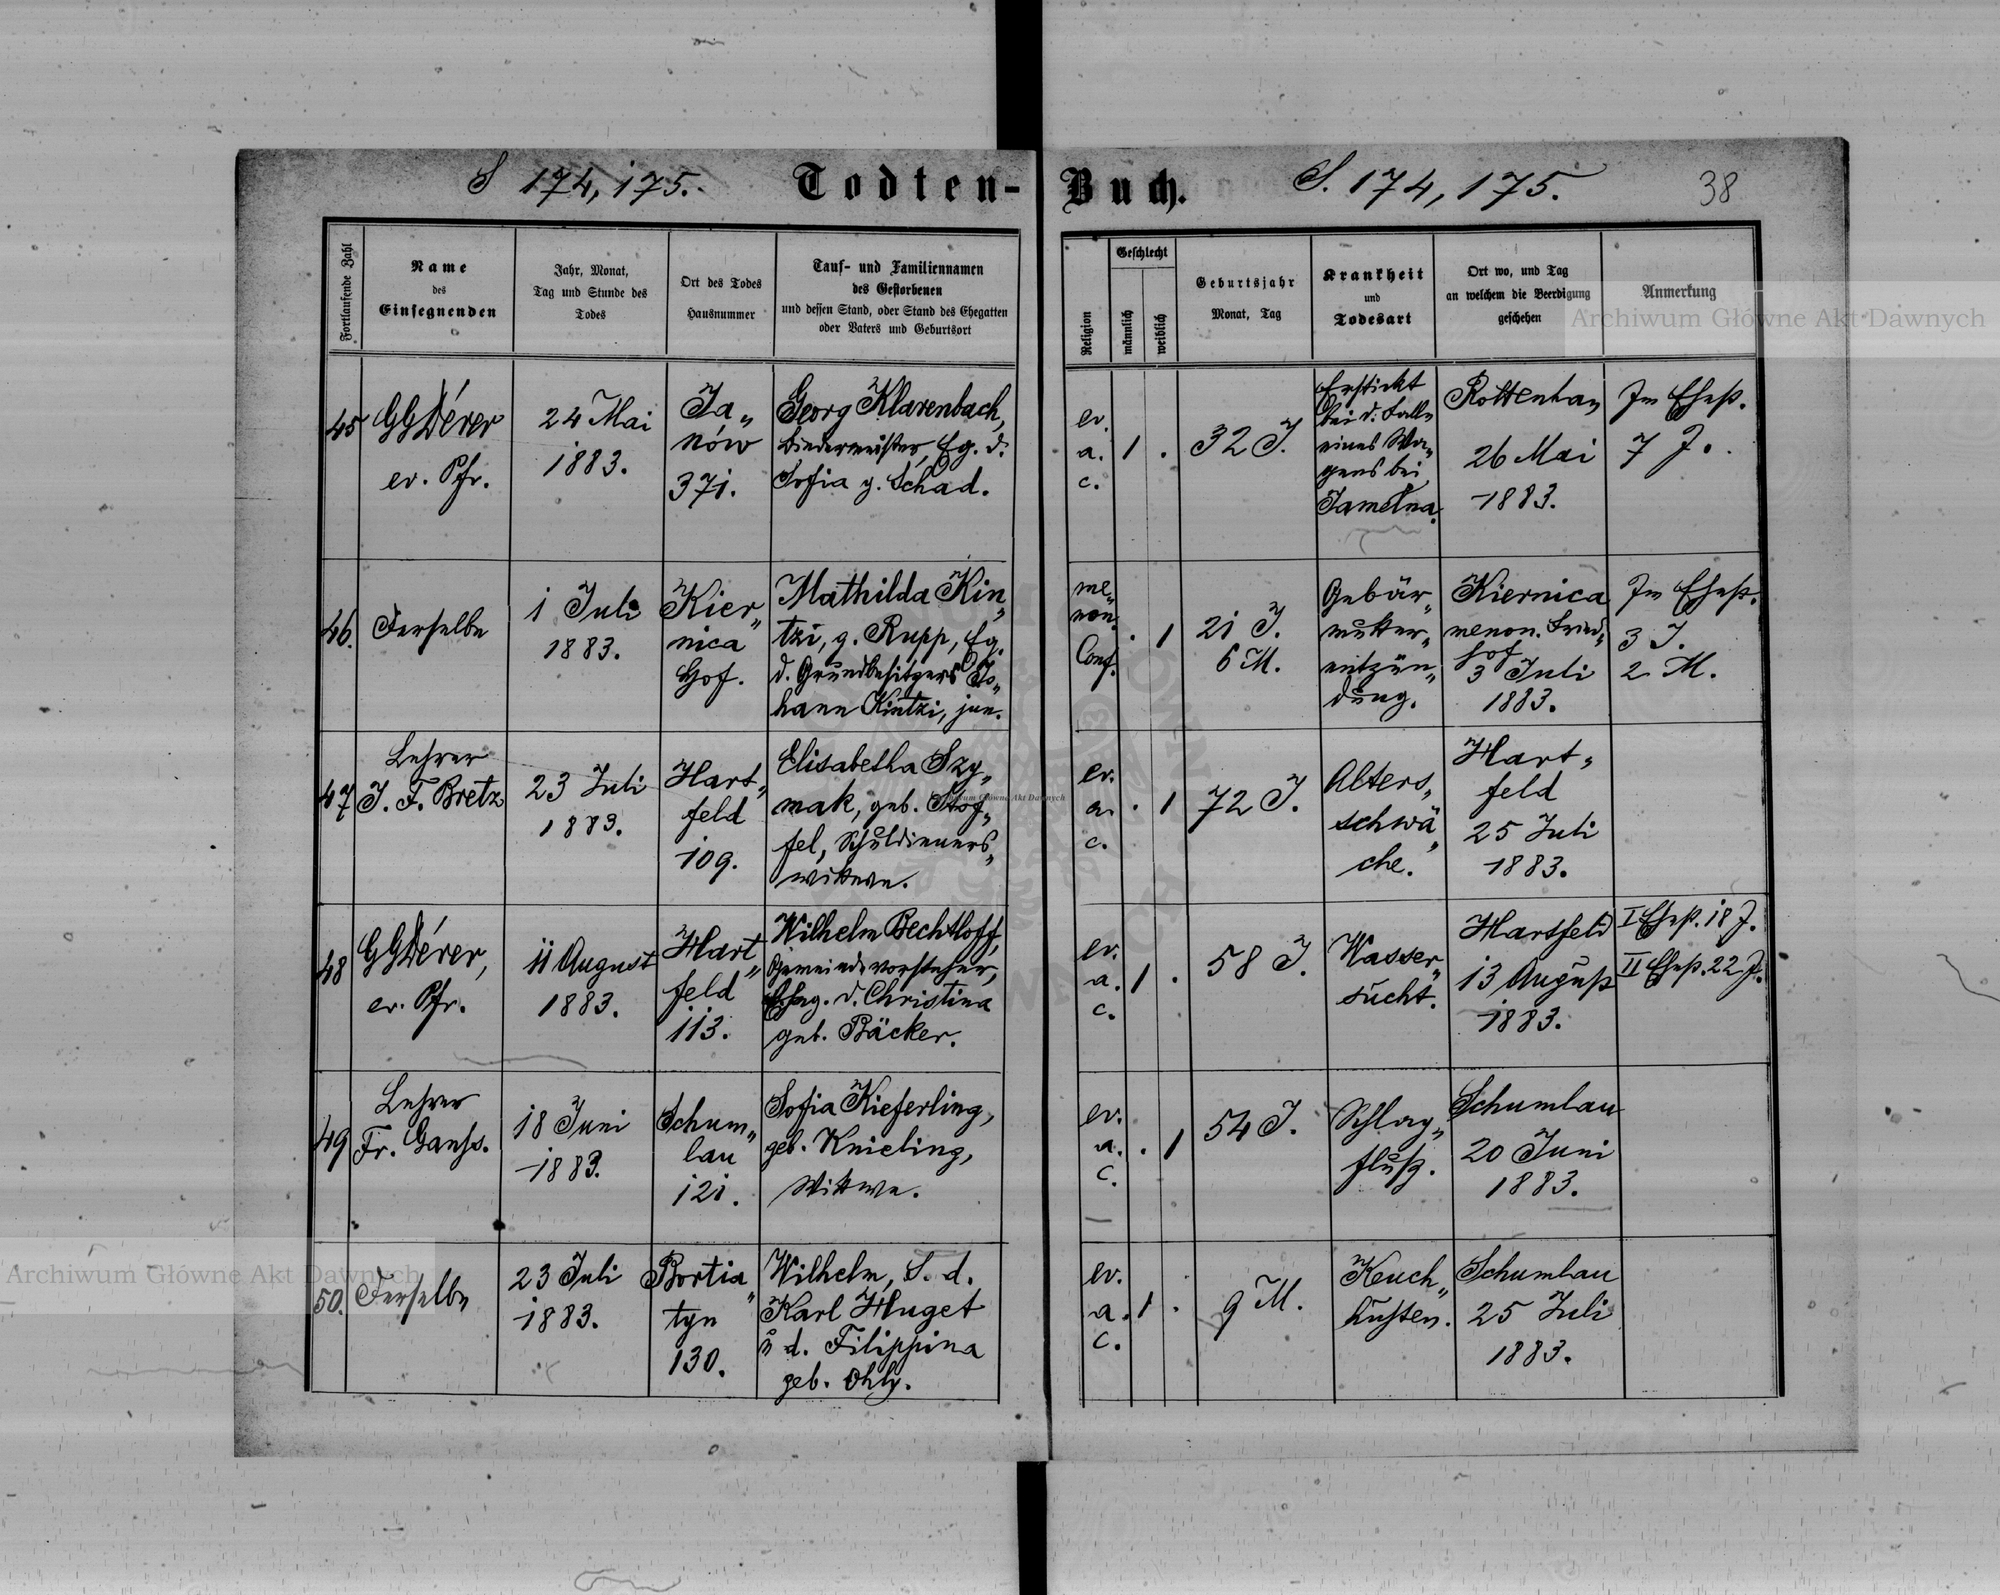 S 174, 175.
Todten-
Buch.
S. 174, 175.
38
Fortlaufende Zahl
Name
des
Einsegnenden
Jahr, Monat,
Tag und Stunde des
Todes
Ort des Todes
Hausnummer
Tauf- und Familiennamen
des Gestorbenen
und dessen Stand, oder Stand des Ehegatten
oder Vaters und Geburtsort
Religion
Geschlecht
männlich
weiblich
Geburtsjahr
Monat, Tag
Krankheit
und
Todesart
Ort wo, und Tag
an welchem die Beerdigung
geschehen
Anmerkung
Archiwum Główne Akt Dawnych
45
GGDérer
ev. Pfr.
24 Mai
1883.
Ja„
nów
371.
Georg Klarenbach,
Eg. d.
Sofia g. Schad.
ev.
a.
c.
1 .
32 J.
Erstickt
bei d. Falle
eines Wa„
gens bei
Jamelna.
Rottenhan
26 Mai
1883.
Im Ehest.
7 J.
46.
Derselbe
1 Juli
1883.
Kier„
nica
Hof.
Mathilda Kin„
tzi, g. Rupp, Eg.
d. Grundbesitzers Jo„
hann Kintzi, jun.
me„
non.
Conf.
. 1
21 J.
6 M.
Gebär„
mutter„
entzün„
dung.
Kiernica
menon. Fried„
hof
3 Juli
1883.
Im Ehest.
3 J.
2 M.
47
Lehrer
J. F. Bretz
23 Juli
1883.
Hart„
feld
109.
Elisabetha Szy„
mak, geb. Stof„
fel, Schuldieners„
wittwe.
ev.
a.
c.
. 1
72 J.
Alters„
schwä„
che.
Hart„
feld
25 Juli
1883.
48
GGDérer,
ev. Pfr.
11 August
1883.
Hart„
feld
113.
Wilhelm Bechtloff,
Gemeindevorsteher,
Ehg. d. Christina
geb. Bäcker.
ev.
a.
c.
1 .
58 J.
Wasser„
sucht.
Hartfeld
13 August
1883.
I Ehest. 18 J.
II Ehest. 22 J.
49
Lehrer
Fr. Ganhs.
18 Juni
1883.
Schum„
lau
121.
Sofia Kieferling,
geb. Knieling,
Wittwe.
ev.
a.
c.
. 1
54 J.
Schlag„
fluß.
Schumlau
20 Juni
1883.
50.
Derselbe
23 Juli
1883.
Bortia„
tyn
130.
Wilhelm, S. d.
Karl Huget
u d. Filippina
geb. Ohly.
ev.
a.
c.
1 .
9 M.
Keuch„
husten.
Schumlau
25 Juli
1883.
Archiwum Główne Akt Dawnych
Archiwum Główne Akt Dawnych